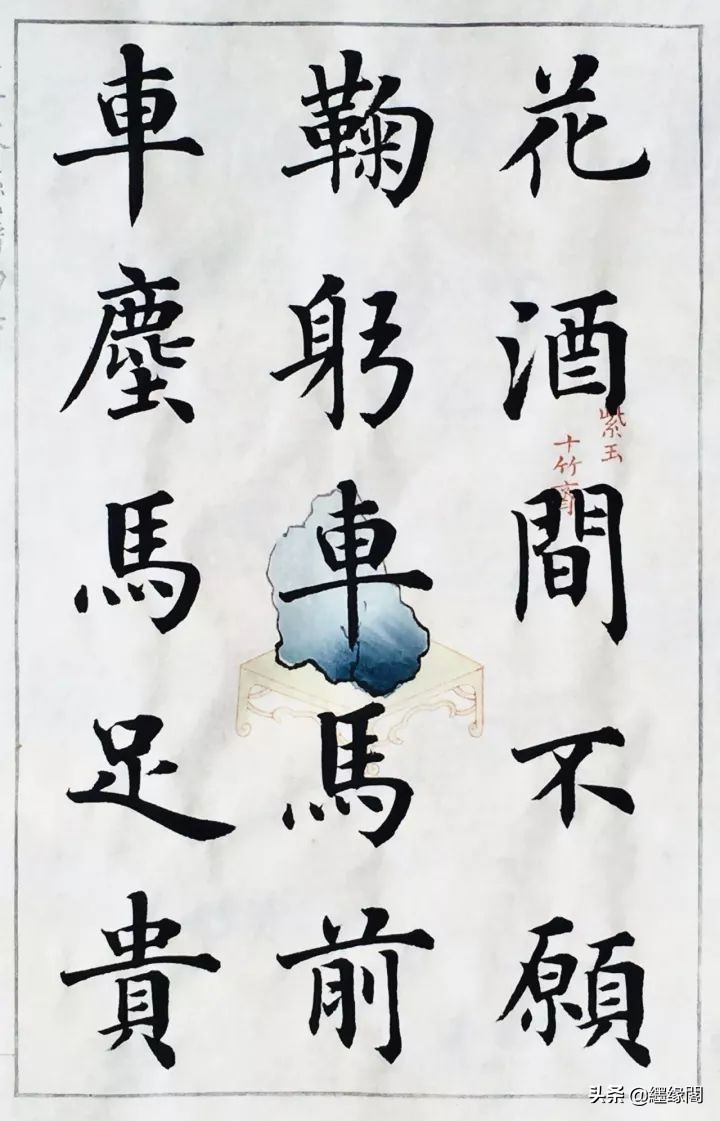 花酒間不願
鞠躬車馬前
車塵馬足貴
紫玉
十竹齋
头条 @纆缘阁